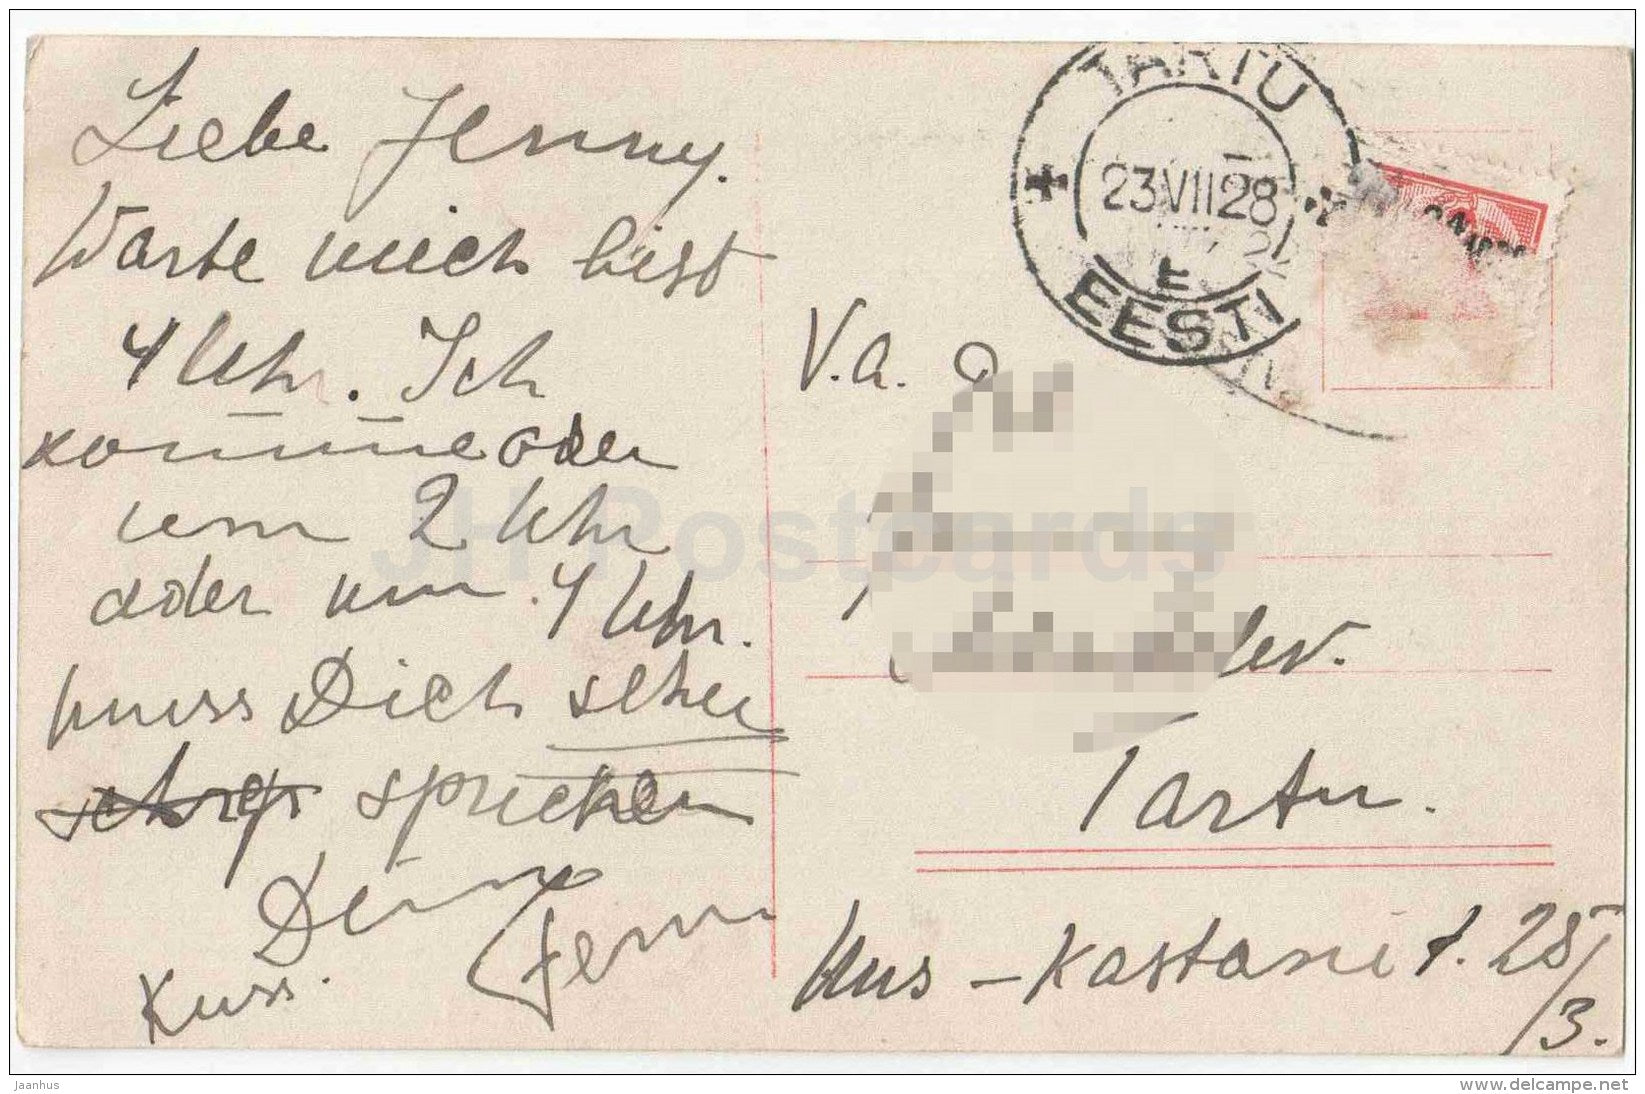 Liebe Jenny.
Warte mich bist
4 Uhr. Ich
komme oder
um 2 Uhr
oder um 4 Uhr.
muss Dich sehen
sprechen
Deine
Kuss. Jenny
TARTU
23 VII 28
E
EESTI
V. a.
lev.
Tartu.
Uus-Kastani t. 25/
3.
JH Postcards
Jaanhus
www.delcampe.net